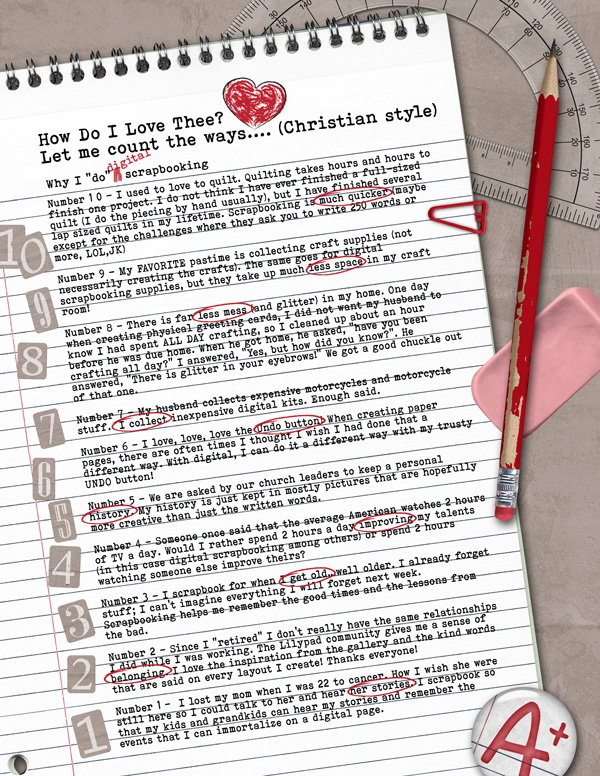 How Do I Love Thee?
Let me count the ways.... (Christian style)
digital
Why I "do" scrapbooking
Number 10 - I used to love to quilt. Quilting takes hours and hours to
finish one project. I do not think I have ever finished a full-sized
quilt (I do the piecing by hand usually), but I have finished several
lap sized quilts in my lifetime. Scrapbooking is much quicker (maybe
except for the challenges where they ask you to write 250 words or
more, LOL,JK)
10
Number 9 - My FAVORITE pastime is collecting craft supplies (not
necessarily creating the crafts). The same goes for digital
scrapbooking supplies, but they take up much less space in my craft
room!
9
Number 8 - There is far less mess (and glitter) in my home. One day
when creating physical greeting cards, I did not want my husband to
know I had spent ALL DAY crafting, so I cleaned up about an hour
before he was due home. When he got home, he asked, "have you been
crafting all day?" I answered, "Yes, but how did you know?". He
answered, "There is glitter in your eyebrows!" We got a good chuckle out
of that one.
8
Number 7 - My husband collects expensive motorcycles and motorcycle
stuff. I collect inexpensive digital kits. Enough said.
7
Number 6 - I love, love, love the Undo button! When creating paper
pages, there are often times I thought I wish I had done that a
different way. With digital, I can do it a different way with my trusty
UNDO button!
6
Number 5 - We are asked by our church leaders to keep a personal
history. My history is just kept in mostly pictures that are hopefully
more creative than just the written words.
5
Number 4 - Someone once said that the average American watches 2 hours
of TV a day. Would I rather spend 2 hours a day improving my talents
(in this case digital scrapbooking among others) or spend 2 hours
watching someone else improve theirs?
4
Number 3 - I scrapbook for when I get old.. well older. I already forget
stuff; I can't imagine everything I will forget next week.
Scrapbooking helps me remember the good times and the lessons from
the bad.
3
Number 2 - Since I "retired" I don't really have the same relationships
I did while I was working. The Lilypad community gives me a sense of
belonging. I love the inspiration from the gallery and the kind words
that are said on every layout I create! Thanks everyone!
2
Number 1 - I lost my mom when I was 22 to cancer. How I wish she were
still here so I could talk to her and hear her stories. I scrapbook so
that my kids and grandkids can hear my stories and remember the
events that I can immortalize on a digital page.
1
A+